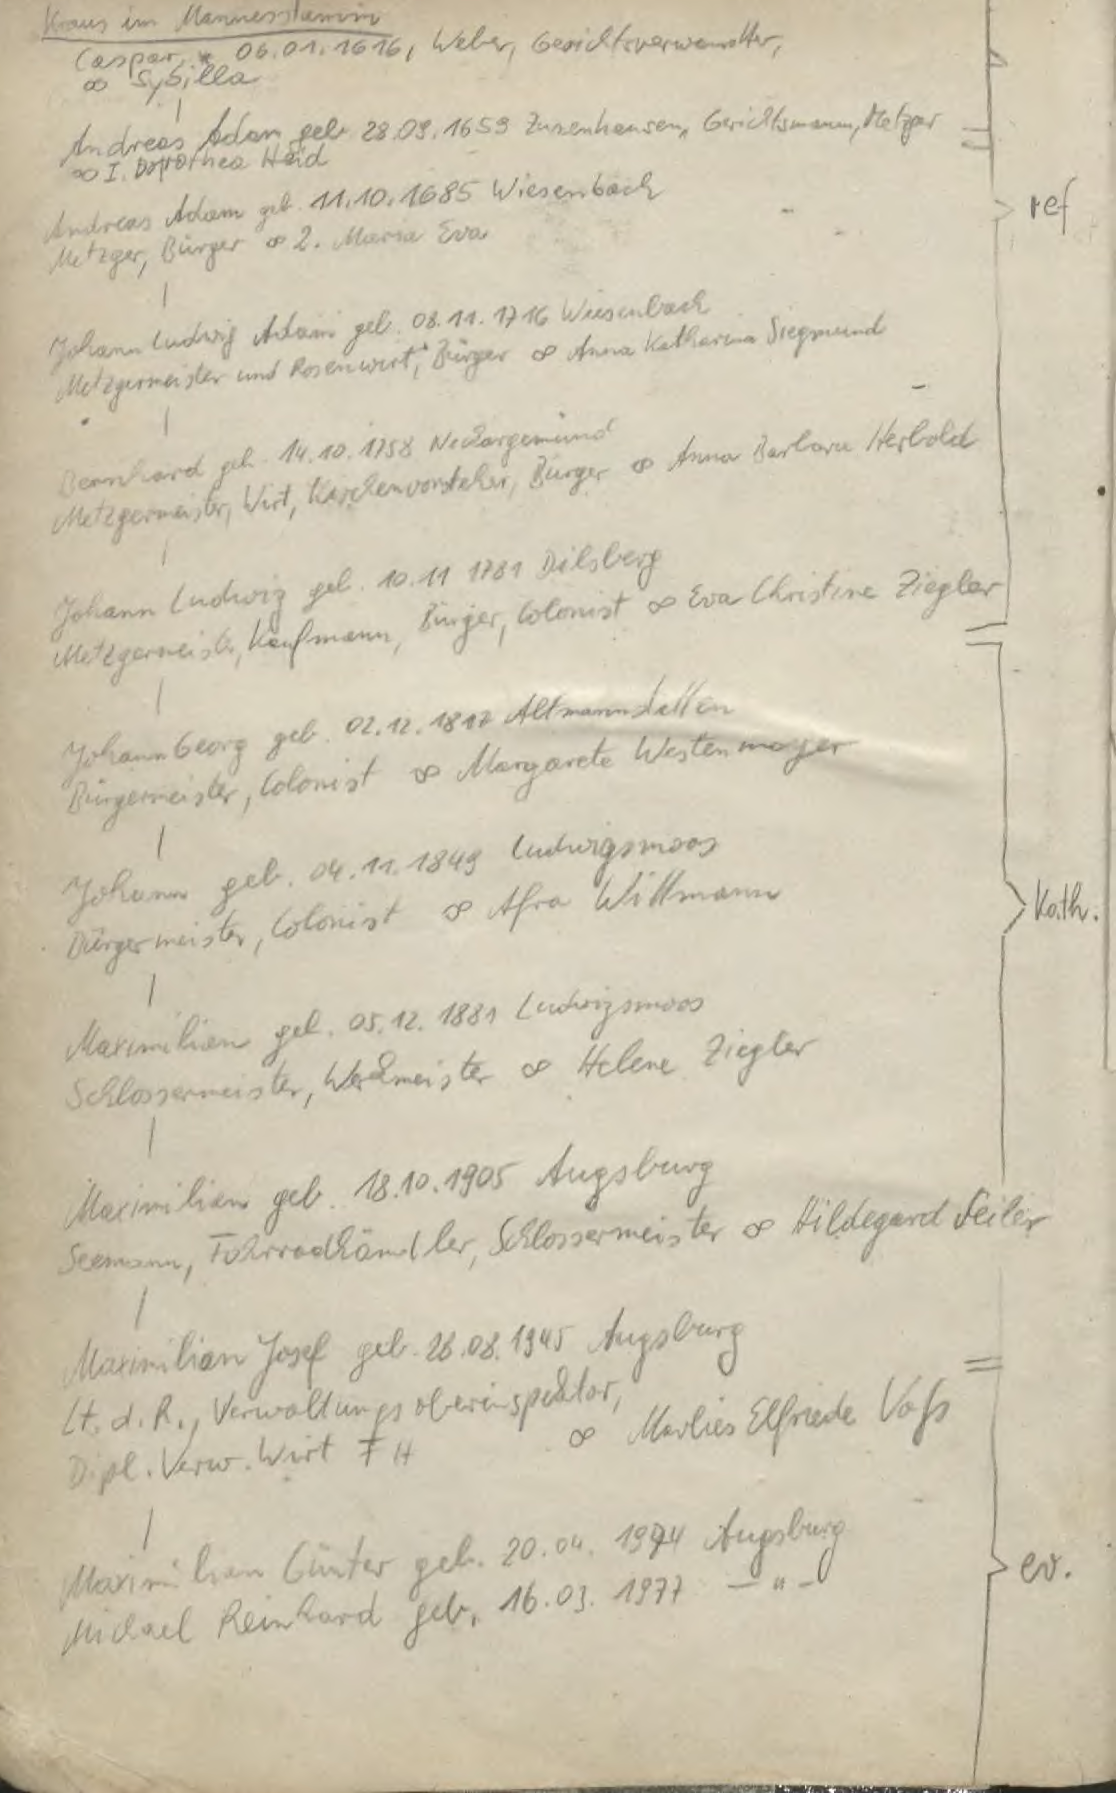 Kraus im Mannesstamm
Caspar, * 06.01.1616, Weber, Gerichtsverwandter,
∞ Sybilla
Andreas Adam geb. 28.09.1659 Zuzenhausen, Gerichtsmann, Metzger
∞ I. Dorothea Heid
Andreas Adam geb. 11.10.1685 Wiesenbach
Metzger, Bürger ∞ 2. Maria Eva
ref
Johann Ludwig Adam geb. 08.11.1716 Wiesenbach
Metzgermeister und Rosenwirt, Bürger ∞ Anna Katharina Siegmund
Bernhard geb. 14.10.1758 Neckargemünd
Metzgermeister, Wirt, Kirchenvorsteher, Bürger ∞ Anna Barbara Herbold
Johann Ludwig geb. 10.11 1781 Dilsberg
Metzgermeister, Kaufmann, Bürger, Colonist ∞ Eva Christine Ziegler
Johann Georg geb. 02.12.1817 Altmannstetten
Bürgermeister, Colonist ∞ Margarete Westenmayer
Johann geb. 04.11.1849 Ludwigsmoos
Bürgermeister, Colonist ∞ Afra Wittmann
Kath.
Maximilian geb. 05.12.1881 Ludwigsmoos
Schlossermeister, Werkmeister ∞ Helene Ziegler
Maximilian geb. 18.10.1905 Augsburg
Seemann, Fahrradhändler, Schlossermeister ∞ Hildegard Seiler
Maximilian Josef geb. 28.08.1945 Augsburg
Lt. d. R., Verwaltungsoberinspektor,
Dipl. Verw. Wirt FH ∞ Marlies Elfriede Voß
Maximilian Günter geb. 20.04.1974 Augsburg
ev.
Michael Reinhard geb. 16.03.1977 — " —